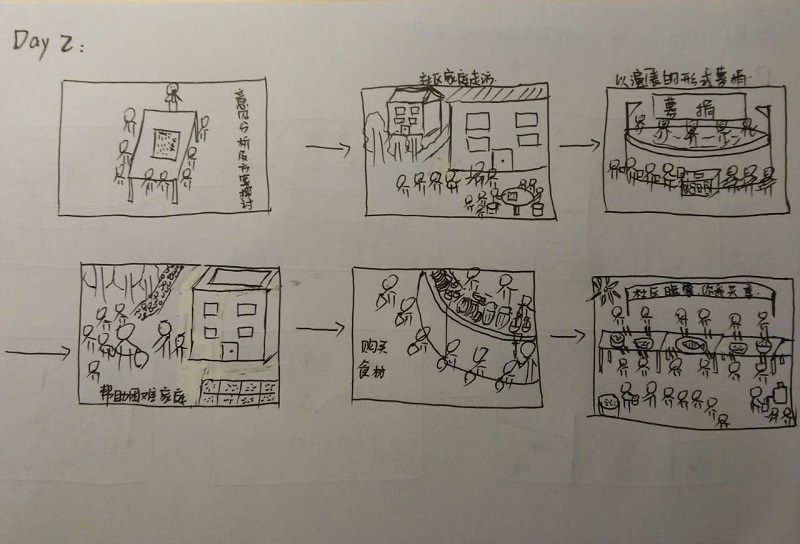 Day 2:
意见分析及方案探讨
社区家庭走访
以演出的形式募捐
募捐
帮助困难家庭
购买
食材
社区暖宴,你我共享